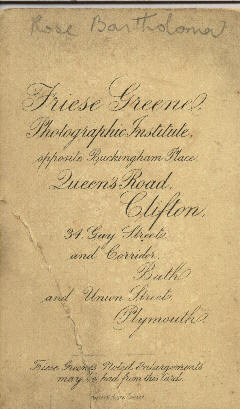 Rose Bartholoma
Friese Greene,
Photographic Institute,
opposite Buckingham Place.
Queen's Road,
Clifton,
34. Gay Street,
and Corridor,
Bath
and Union Street,
Plymouth.
Friese Greene's Noted Enlargements
may be had from this Card.